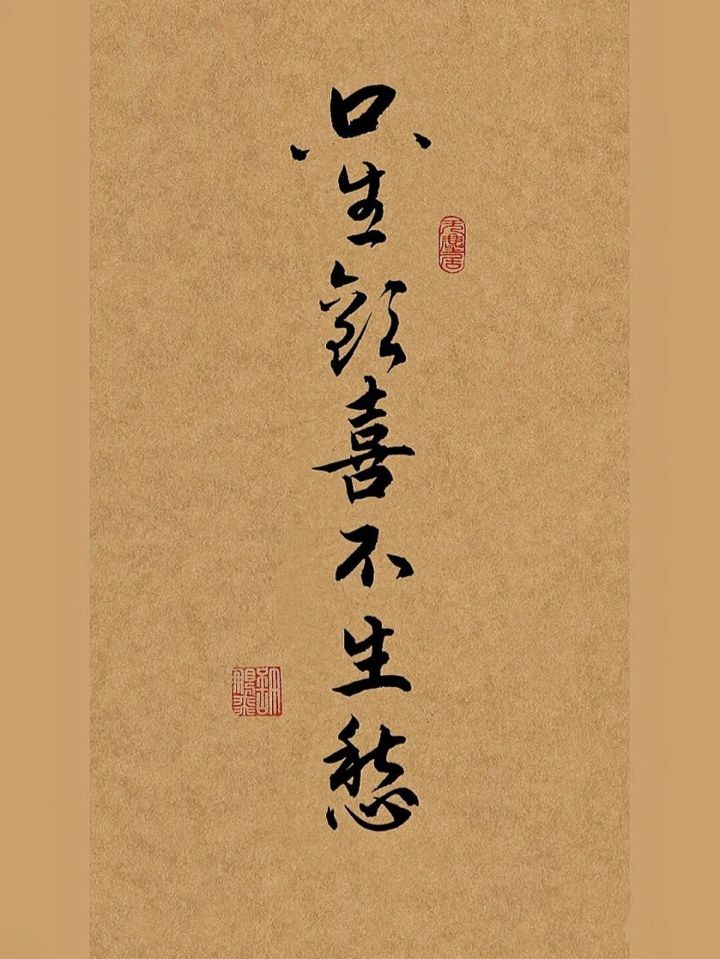 只生歡喜不生愁